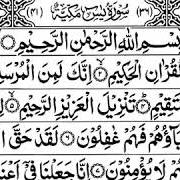 (٣٦) سُوْرَةُ يٰسٓ مَكِّيَّةٌ (٤١)
بِسْمِ اللهِ الرَّحْمٰنِ الرَّحِيْمِ
لْقُرْاٰنِ الْحَكِيْمِ ۝٢ اِنَّكَ لَمِنَ الْمُرْسَلِ
تَقِيْمٍ ۝٤ تَنْزِيْلَ الْعَزِيْزِ الرَّحِيْمِ ۝٥ لِ
بَآؤُهُمْ فَهُمْ غٰفِلُوْنَ ۝٦ لَقَدْ حَقَّ ا
هُمْ لَا يُؤْمِنُوْنَ ۝٧ اِنَّا جَعَلْنَا فِيْٓ اَعْنَا